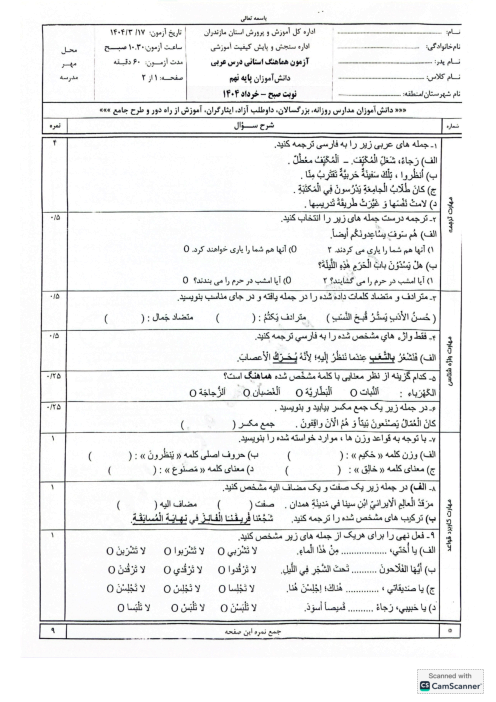 باسمه تعالی
نــام: 
نام‌خانوادگی:
نام پدر:
نام کلاس:
نام شهرستان/منطقه:
اداره کل آموزش و پرورش استان مازندران
اداره سنجش و پایش کیفیت آموزشی
آزمون هماهنگ استانی درس عربی
دانش‌آموزان پایه نهم
نوبت صبح – خرداد ۱۴۰۴
تاریخ آزمون: ۱۴۰۴/۳/۱۷
ساعت آزمون: ۱۰:۳۰ صبح
مدت آزمون: ۶۰ دقیقه
صفحه: ۱ از ۲
محل
مهر
مدرسه
«««دانش‌آموزان مدارس روزانه، بزرگسالان، داوطلب آزاد، ایثارگران، آموزش از راه دور و طرح جامع »»»
شماره شرح سـؤال نمره
مهارت ترجمه
۱- جمله های عربی زیر را به فارسی ترجمه کنید. ۴
الف) رَجاءً، شَغِّلْ الْمُكَيِّفَ. – اَلْمُكَيِّفُ مُعَطَّلٌ.
ب) اُنظُروا ، تِلْكَ سَفينَةٌ حَربيَّةٌ تَقْتَرِبُ مِنّا .
ج) كانَ طُلّابُ الْجامِعَةِ يَدْرُسونَ فِي الْمَكتَبَةِ.
د) لامَتْ نَفْسَها وَ غَيَّرَتْ طَريقَةَ تَدريسِها.
۲- ترجمه درست جمله های زیر را انتخاب کنید. ۰/۵
الف) هُم سَوفَ يُساعِدونَكُم أيضاً.
۱) آنها هم شما را یاری می کردند. O ۲) آنها هم شما را یاری خواهند کرد. O
ب) هَلْ يَسُدّونَ بابَ الْحَرَمِ هٰذِهِ اللَّيلَةَ؟
۱) آیا امشب در حرم را می گشایند؟ O ۲) آیا امشب در حرم را می بندند؟ O
مهارت واژه شناسی
۳- مترادف و متضاد کلمات داده شده را در جمله یافته و در جای مناسب بنویسید. ۰/۵
( حُسنُ الْأَدَبِ يَستُرُ قُبحَ النَّسَبِ ) مترادف يَكتُمُ : ( ) متضاد جَمال : ( )
۴- فقط واژه های مشخص شده را به فارسی ترجمه کنید. ۰/۵
الف) فَنَشعُرُ بِالتَّعَبِ عِندَما نَنظُرُ إلَيهِ؛ لِأَنَّهُ يُحَرِّكُ الْأَعصابَ.
۵- کدام گزینه از نظر معنایی با کلمهٔ مشخص شده هماهنگ است؟ ۰/۲۵
الكَهرَباء : اَلنَّبات O اَلْبَطّاريَّة O اَلْغَضبان O اَلزُّجاجَة O
۶- در جمله زیر یک جمع مکسر بیابید و بنویسید . ۰/۲۵
كانَ الْعُمّالُ يَصنَعونَ بَيتاً وَ هُمُ الْآنَ واقِفونَ . جمع مکسر ( )
مهارت کاربرد قواعد
۷- با توجه به قواعد وزن ها ، موارد خواسته شده را بنویسید. ۱
الف) وزن کلمه « حَكيم » : ( ) ب) حروف اصلی کلمه « يَنظُرونَ » : ( )
ج) معنای کلمه « خالِق » : ( ) د) معنای کلمه « مَصنوع » : ( )
۸- الف) در جمله زیر یک صفت و یک مضاف الیه مشخص کنید. ۱
مَرقَدُ الْعالِمِ الْإيرانيِّ ابْنِ سينا في مَدينَةِ هَمدان . صفت ( ) مضاف الیه ( )
ب) ترکیب های مشخص شده را ترجمه کنید. شَجَّعْنا فَريقَنَا الْفائِزَ في نِهايَةِ الْمُسابَقَةِ.
۹- فعل نهی را برای هریک از جمله های زیر مشخص کنید. ۱
الف) يا أُختي، .................. مِنْ هٰذَا الْماءِ. لا تَشْرَبي O لا تَشْرَبوا O لا تَشْرَبْنَ O
ب) أيُّهَا الْفَلّاحونَ .............. تَحتَ الشَّجَرِ فِي اللَّيلِ. لا تَرقُدوا O لا تَرقُدي O لا تَرقُدْنَ O
ج) يا صَديقاتي ، ............ هُناكَ؛ اِجْلِسْنَ هُنا. لا تَجْلِسا O لا تَجْلِسْ O لا تَجْلِسْنَ O
د) يا حَبيبي، رَجاءً .......... قَميصاً أسوَدَ. لا تَلْبَسْنَ O لا تَلْبَسْ O لا تَلْبَسي O
* جمع نمره این صفحه ۹
Scanned with
CS CamScanner